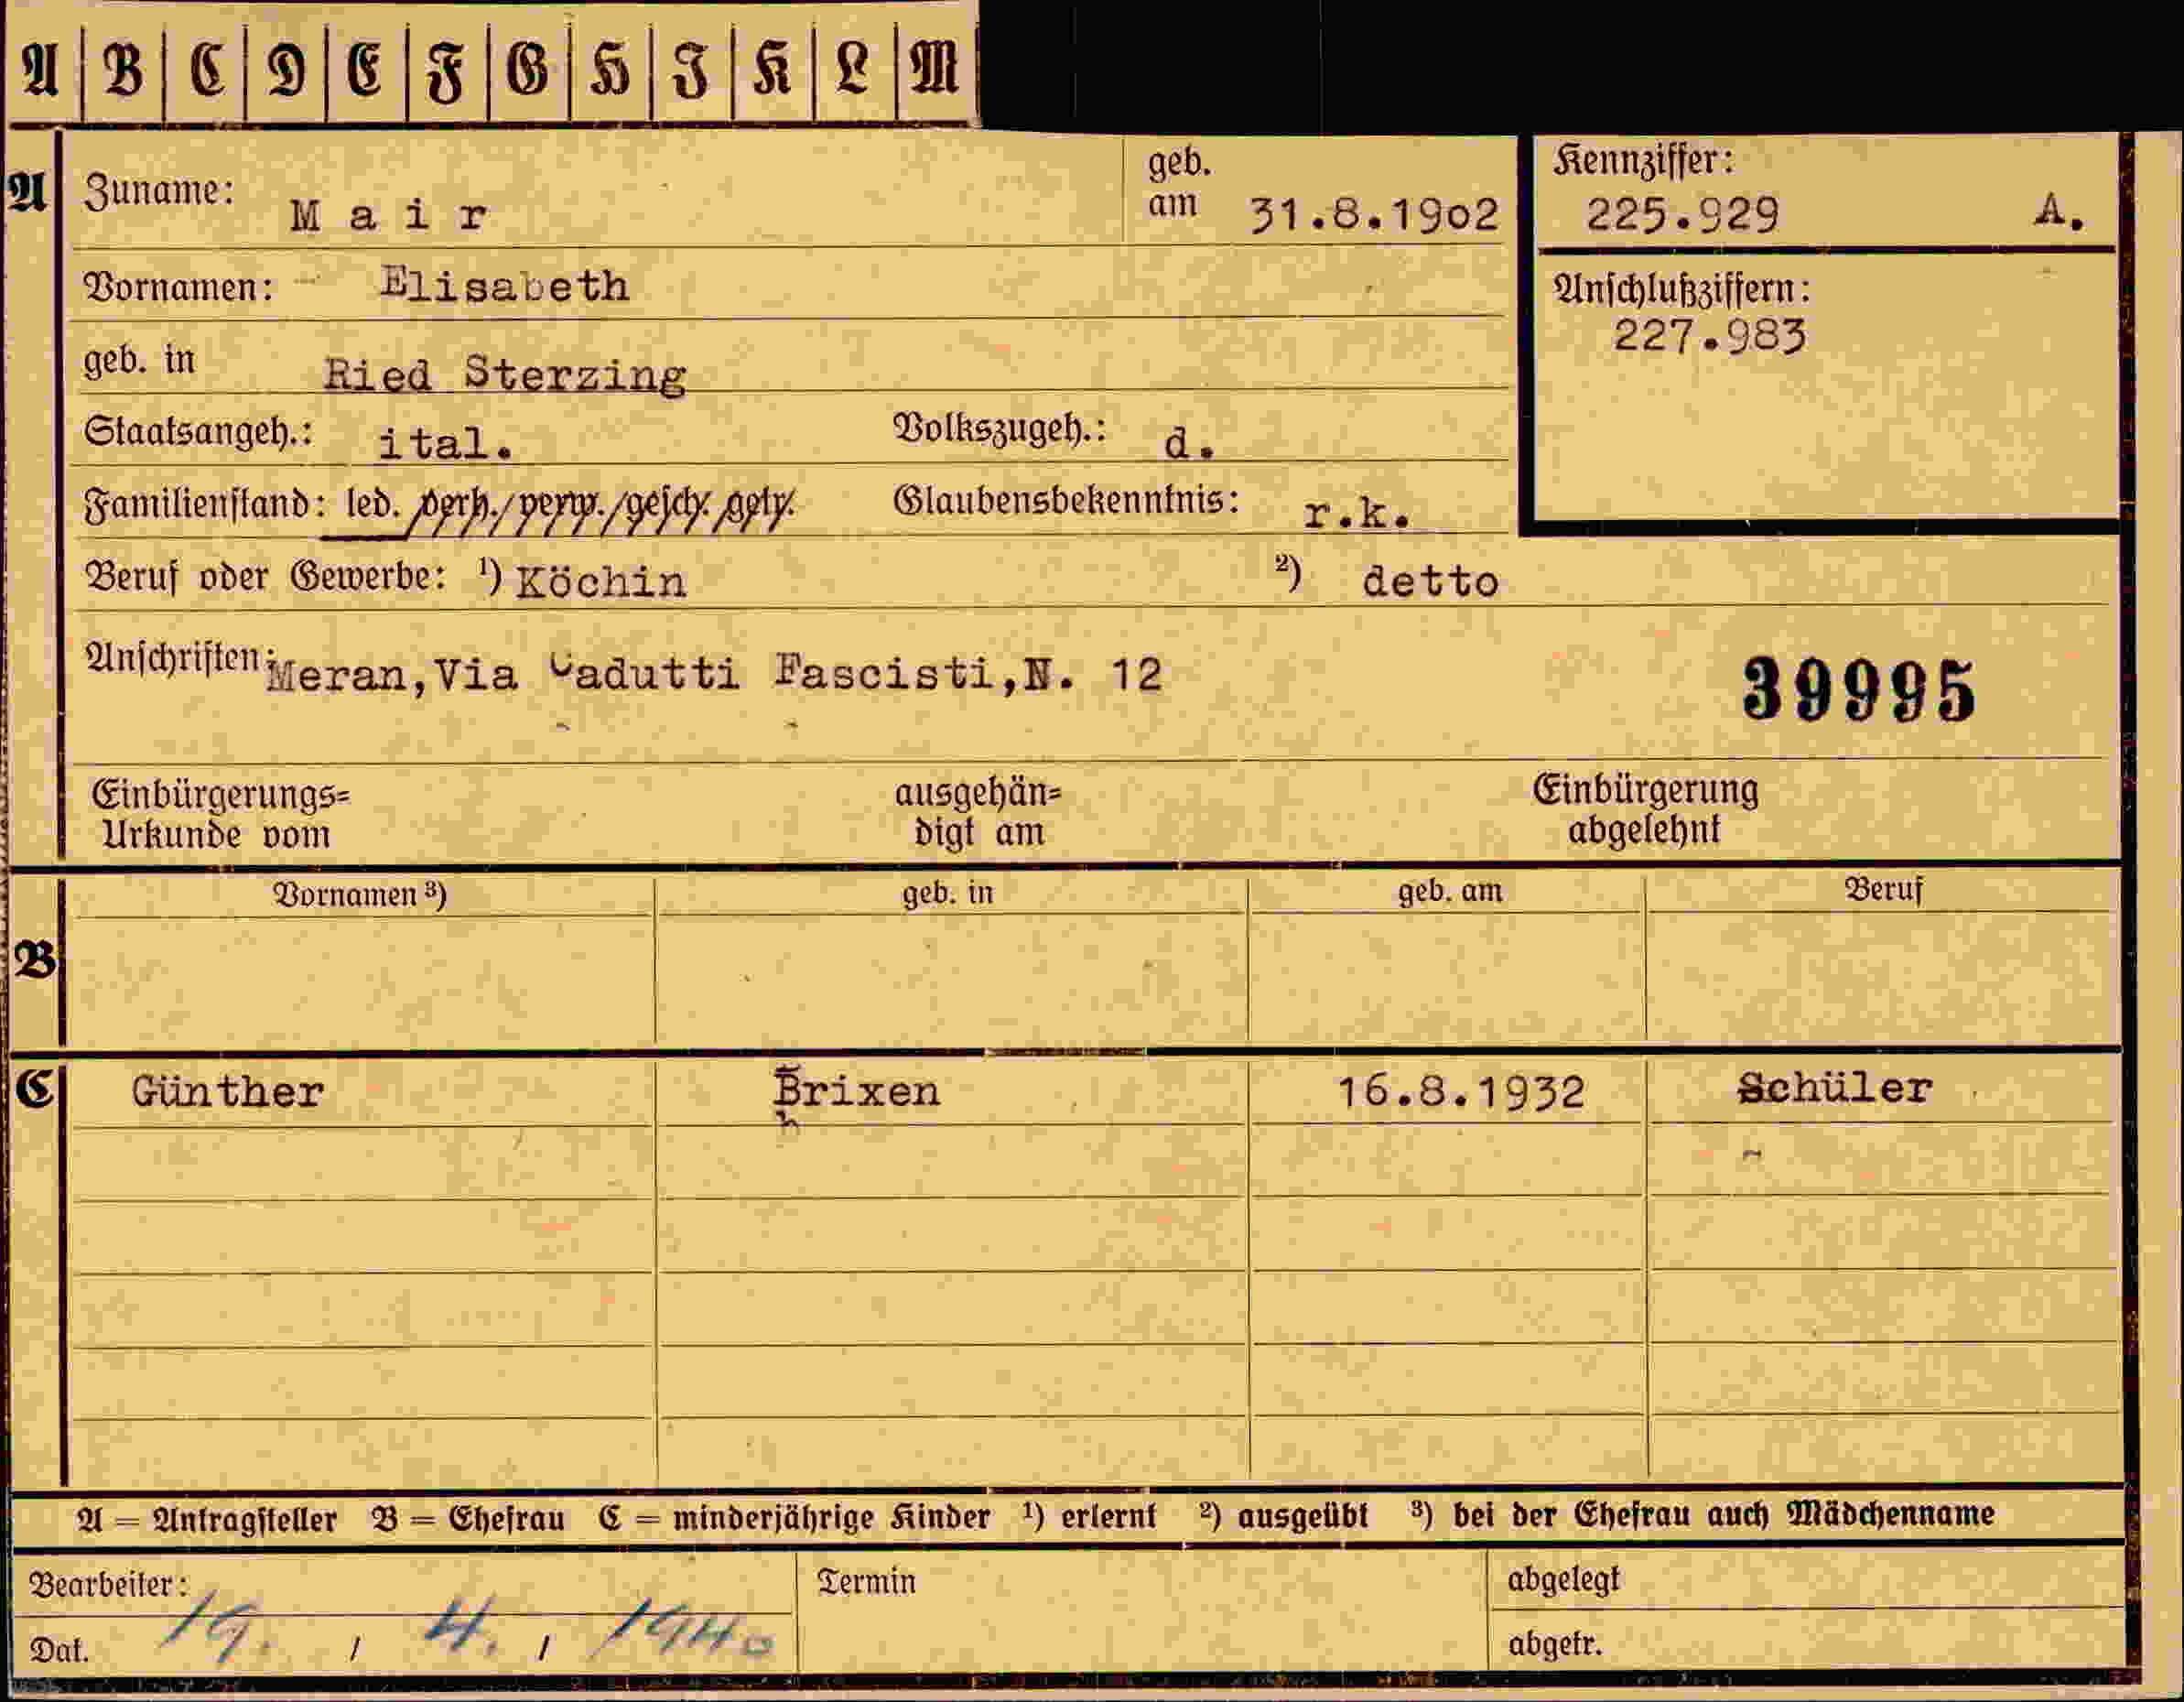 A B C D E F G H J K L M
A Zuname: Mair geb. am 31.8.1902 Kennziffer: 225.929 A.
Vornamen: Elisabeth Anschlußziffern:
227.983
geb. in Ried Sterzing
Staatsangeh.: ital. Volkszugeh.: d.
Familienstand: led. verh./verw./gesch. getr. Glaubensbekenntnis: r.k.
Beruf oder Gewerbe: ¹) Köchin ²) detto
Anschriften: Meran, Via Cadutti Fascisti, N. 12 39995
Einbürgerungs= ausgehän= Einbürgerung
Urkunde vom digt am abgelehnt
B Vornamen ³) geb. in geb. am Beruf
C Günther Brixen 16.8.1932 Schüler
A = Antragsteller B = Ehefrau C = minderjährige Kinder ¹) erlernt ²) ausgeübt ³) bei der Ehefrau auch Mädchenname
Bearbeiter: Termin abgelegt
Dat. 19. / 4. / 1940 abgetr.